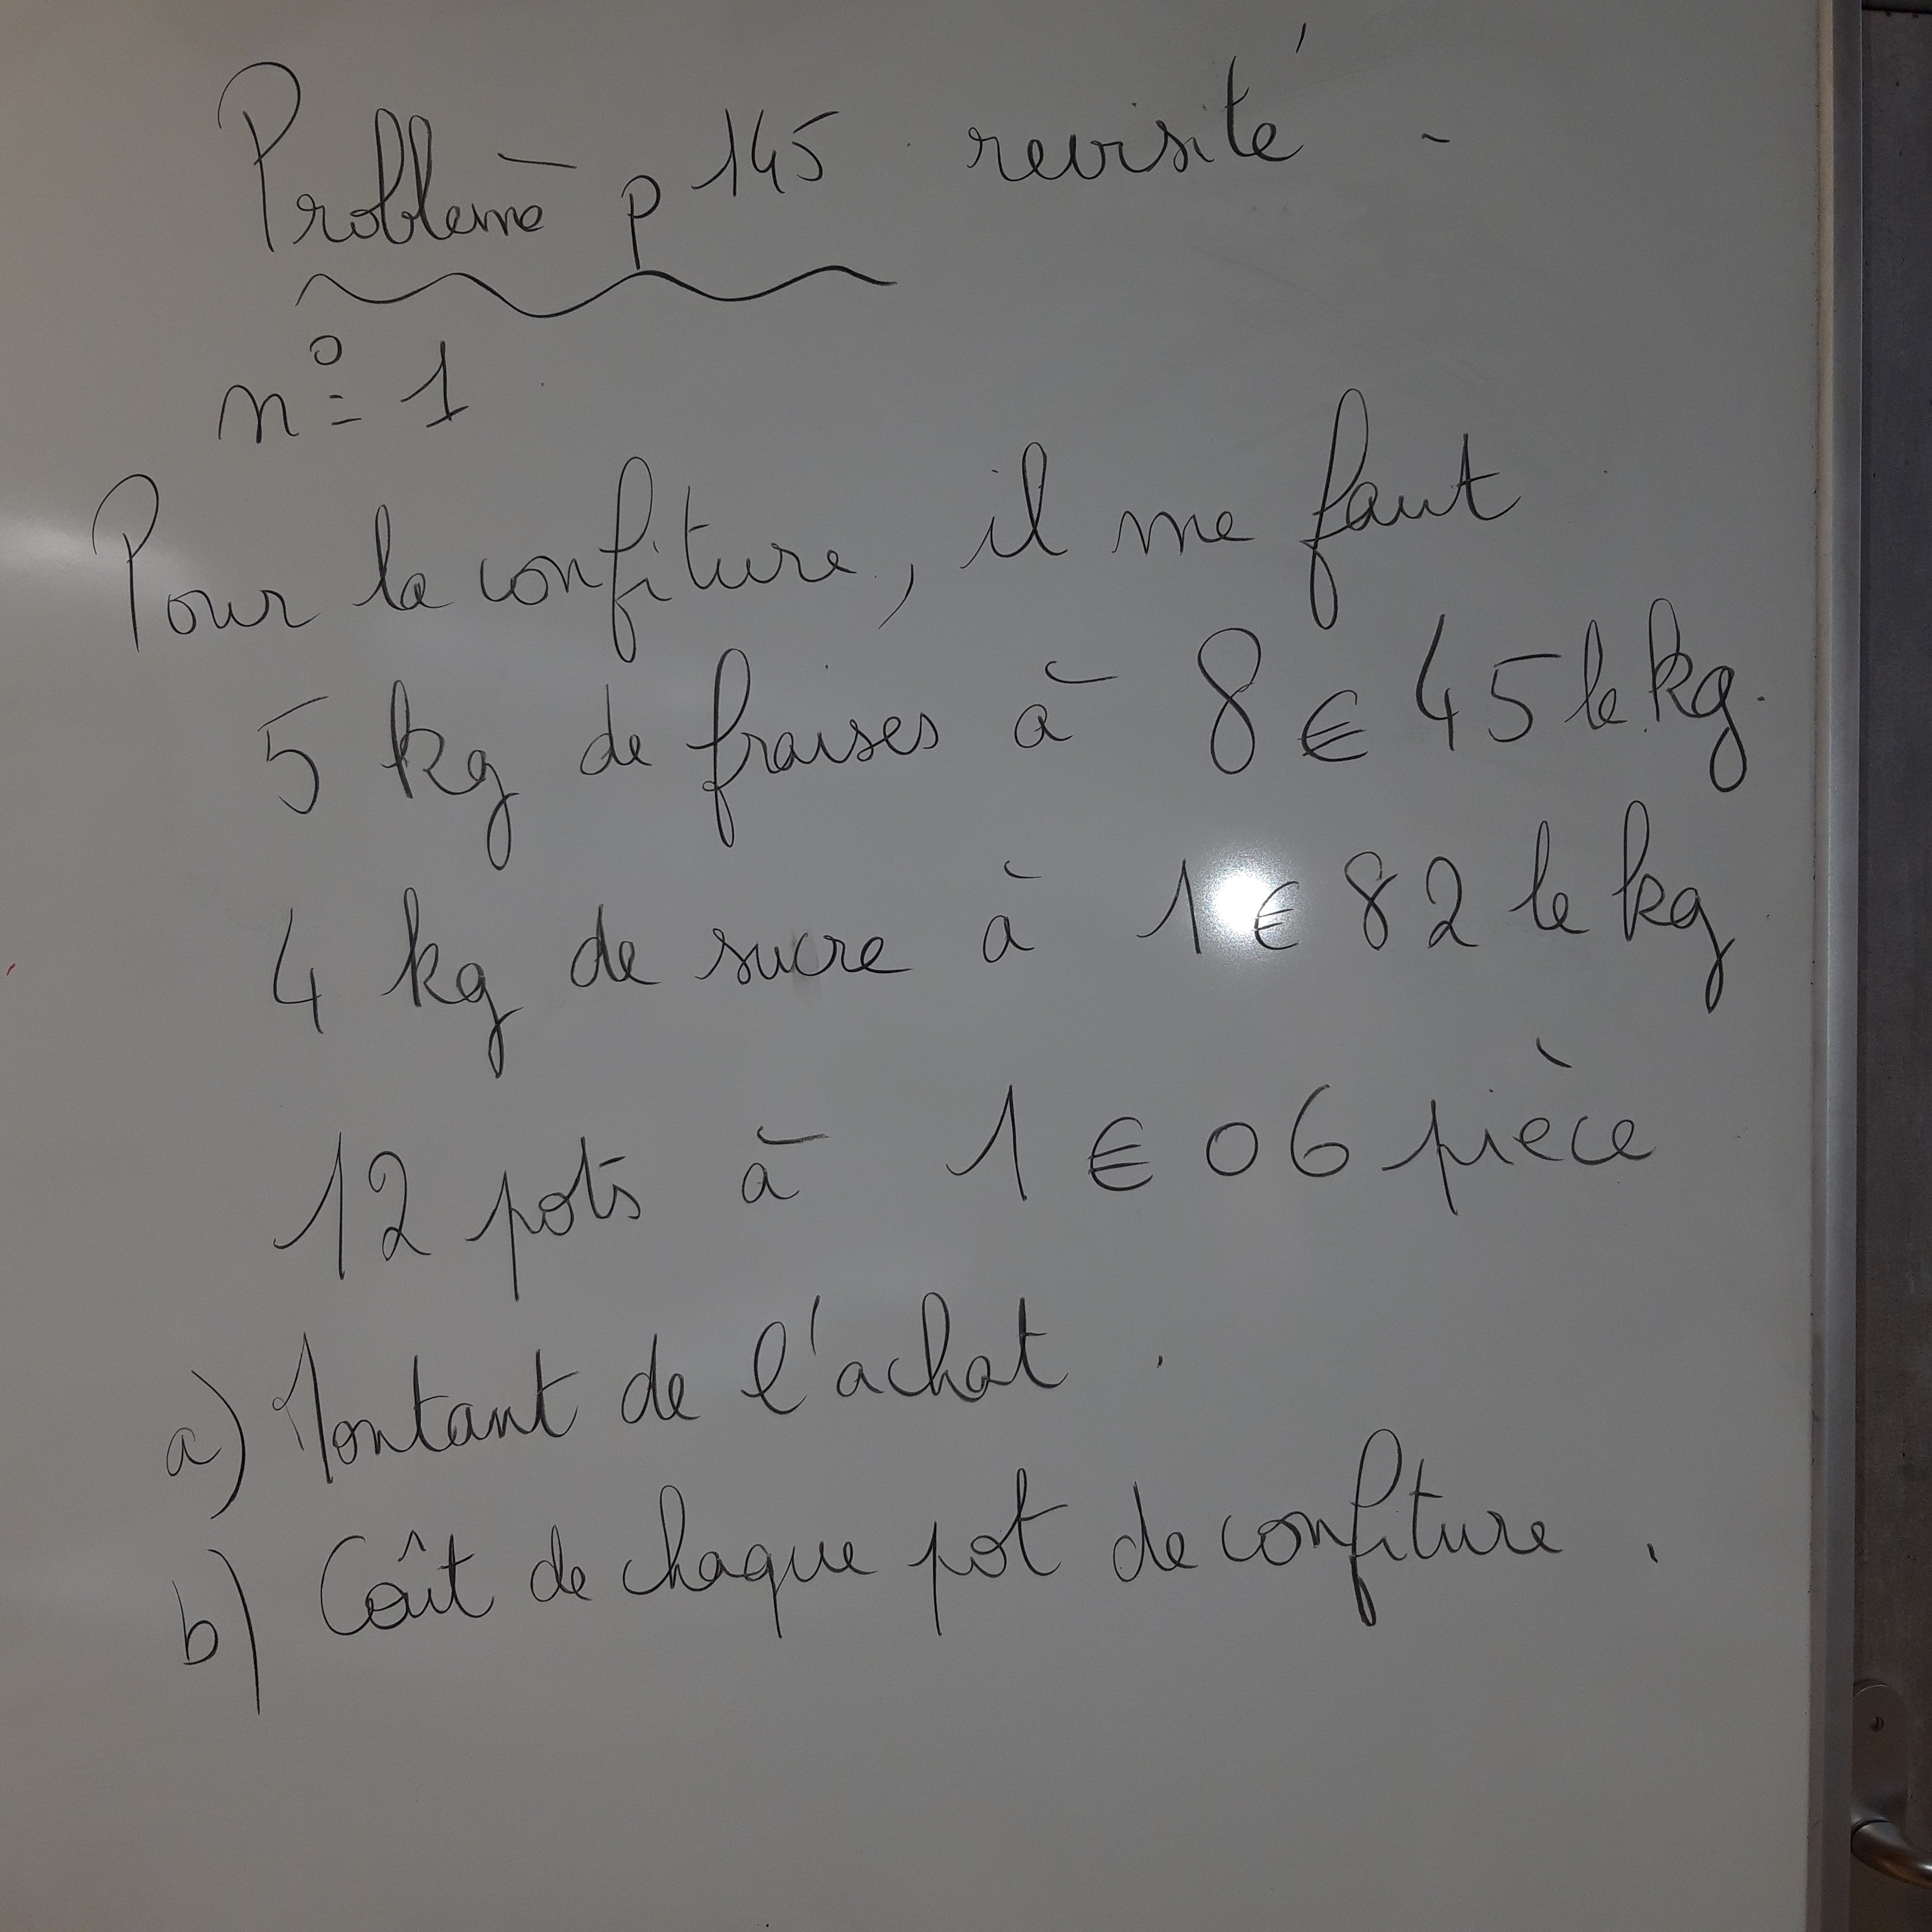 Problème p 145 revisité
n° 1
Pour la confiture, il me faut
5 kg de fraises à 8 € 45 le kg.
4 kg de sucre à 1 € 82 le kg
12 pots à 1 € 06 pièce
a) Montant de l'achat.
b) Coût de chaque pot de confiture.